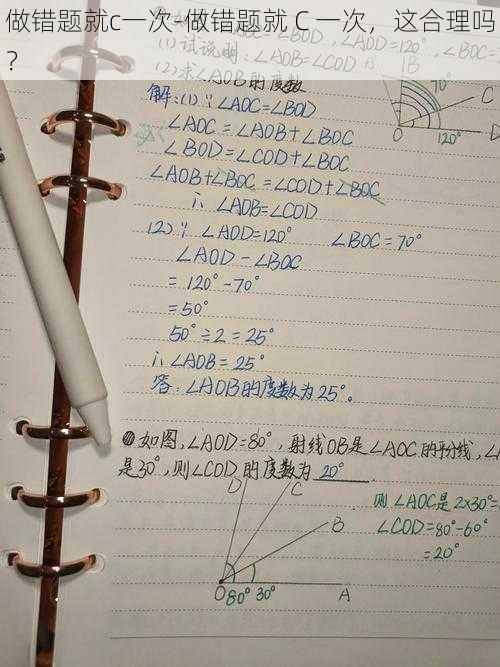 做错题就c一次-做错题就 C 一次，这合理吗
?
(1)试说明：∠AOB=∠COD A B
(2)求∠AOB的度数 70°
C
解：(1)∵∠AOC=∠BOD
∠AOC=∠AOB+∠BOC O 120° D
∠BOD=∠COD+∠BOC
∠AOB+∠BOC=∠COD+∠BOC
∴ ∠AOB=∠COD
(2)∵ ∠AOD=120° ∠BOC=70°
∠AOD-∠BOC
=120°-70°
=50°
50°÷2=25°
∴∠AOB=25°
答：∠AOB的度数为25°。
如图，∠AOD=80°，射线OB是∠AOC的平分线，
是30°，则∠COD的度数为 20°
D C 则∠AOC是2×30°
B ∠COD=80°-60°
=20°
O 80° 30° A